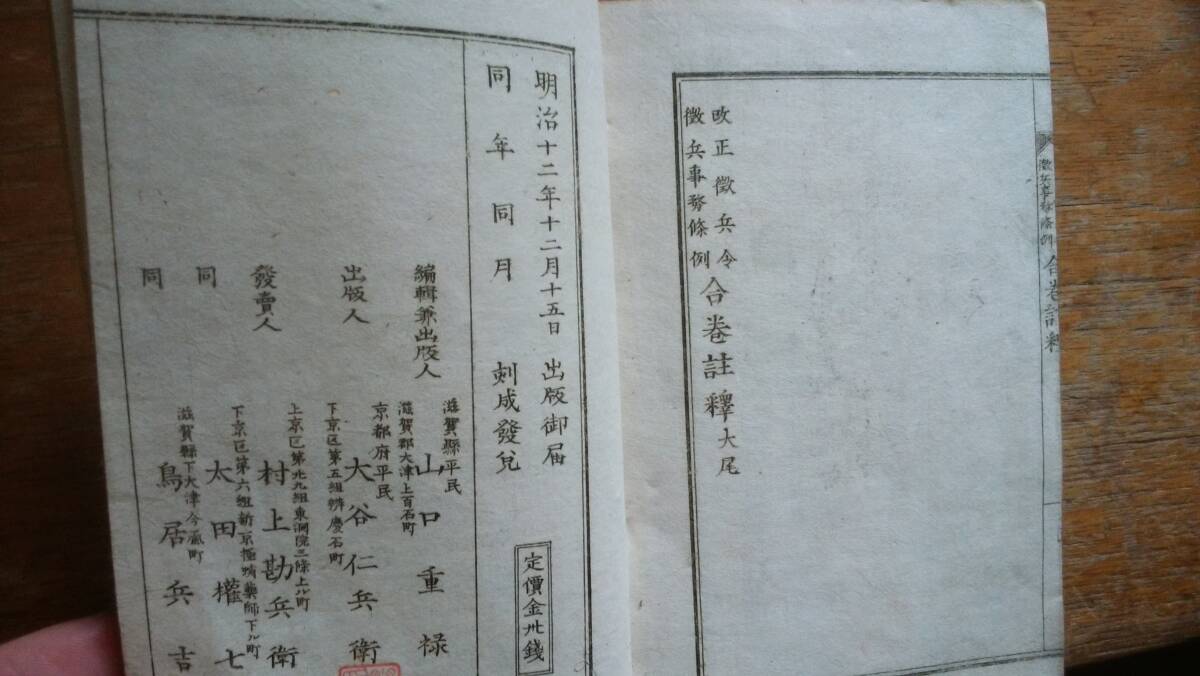 徴兵事務條例
合卷註釋
改正徴兵令
徴兵事務條例
合卷註釋大尾
明治十二年十二月十五日出版御届
同年同月 刻成發兌
定價金卅錢
編輯兼出版人
滋賀縣平民
山口重禄
滋賀郡大津上百石町
出版人
京都府平民
大谷仁兵衛
下京区第五組辨慶石町
發賣人
上京区第廿九組東洞院三條上ル町
村上勘兵衛
同
下京区第六組新京極蛸藥師下ル町
太田權七
同
滋賀縣下大津今颪町
鳥居兵吉